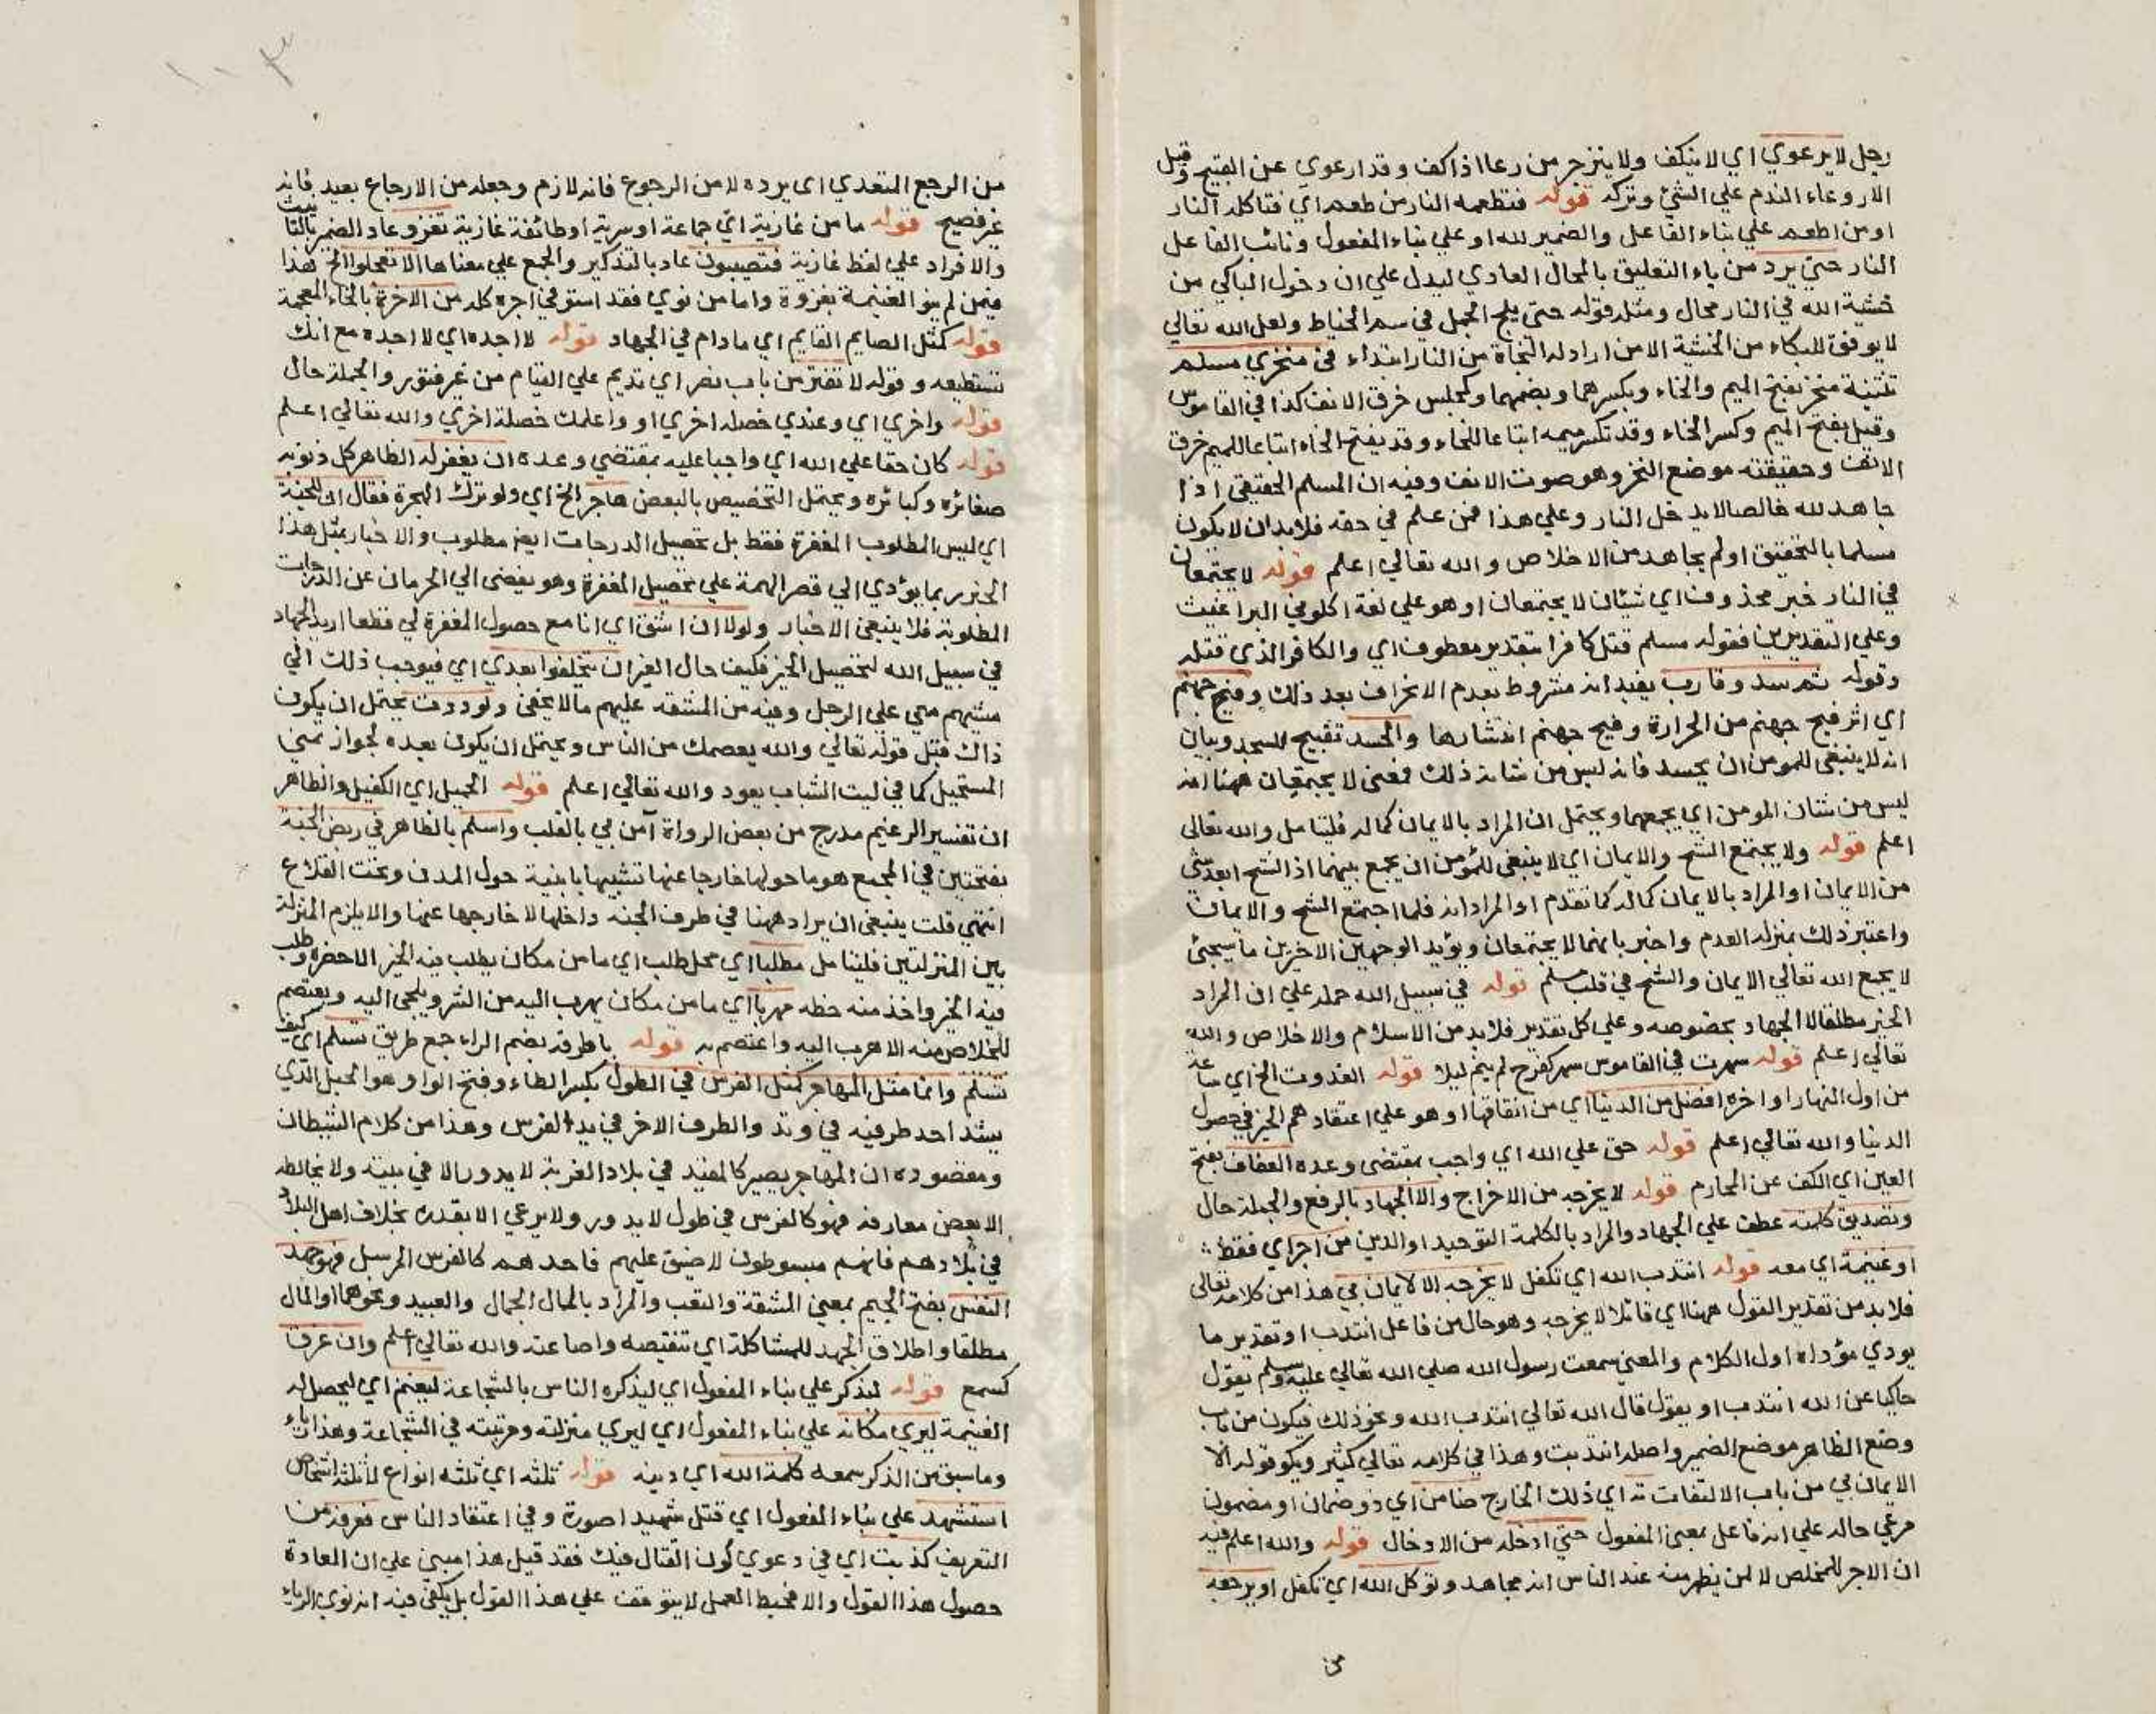 رجل لا يرعوي اي لا ينكف ولا ينزجر من رعا اذا كف وقد ارعوي عن القبيح وقيل
الارعواء الندم علي الشئ وتركه قوله فتطعمه النار من طعم اي فتاكله النار
او من اطعم علي بناء الفاعل والضمير لله او علي بناء المفعول ونائب الفاعل
النار حتي يرد من باء التعليق بالمحال العادي ليدل علي ان دخول الباكي من
خشية الله في النار محال ومثله قوله حتي يلج الجمل في سم الخياط ولعل الله تعالي
لا يوفق للبكاء من الخشية الا من اراد له النجاة من النار ابتداء في منخري مسلم
تثنية منخر بفتح الميم والخاء وبكسرهما وبضمهما وكمجلس خرق الانف كذا في القاموس
وقيل بفتح الميم وكسر الخاء وقد تكسر ميمه اتباعا للخاء وقد يفتح الخاء اتباعا للميم خرق
الانف وحقيقته موضع النخر وهو صوت الانف وفيه ان المسلم الحقيقي اذا
جاهد لله خالصا لا يدخل النار وعلي هذا فمن علم في حقه فلا بد ان لا يكون
مسلما بالتحقيق او لم يجاهد من الاخلاص والله تعالي اعلم قوله لا يجتمعان
في النار خبر محذوف اي شيئان لا يجتمعان او هو علي لغة اكلوني البراغيث
وعلي التقديرين فقوله مسلم قتل كافرا بتقدير معطوف اي والكافر الذي قتله
وقوله ثم سدد وقارب يفيد انه مشروط بعدم الانحراف بعد ذلك وفيح جهنم
اي اثر فيح جهنم من الحرارة وفيح جهنم انتشارها والحسد تقبيح للحسد وبيان
انه لا ينبغي للمومن ان يحسد فانه ليس من شانه ذلك فمعني لا يجتمعان ههنا انه
ليس من شان المومن اي يجمعهما ويحتمل ان المراد بالايمان كماله فليتامل والله تعالي
اعلم قوله ولا يجتمع الشح والايمان اي لا ينبغي للمؤمن ان يجمع بينهما اذ الشح ابعد شئ
من الايمان او المراد بالايمان كماله كما تقدم او المراد انه قلما اجتمع الشح والايمان
واعتبر ذلك بمنزلة العدم واخبر بانهما لا يجتمعان ويؤيد الوجهين الاخيرين ما سيجئ
لا يجمع الله تعالي الايمان والشح في قلب مسلم قوله في سبيل الله حمله علي ان المراد
الخير مطلقا لا الجهاد بخصوصه وعلي كل تقدير فلا بد من الاسلام والاخلاص والله
تعالي اعلم قوله سهرت في القاموس سهر كفرح لم ينم ليلا قوله الغدوت الخ اي ساعة
من اول النهار او اخره افضل من الدنيا اي من انفاقها او هو علي اعتقادهم الخير في حصول
الدنيا والله تعالي اعلم قوله حق علي الله اي واجب بمقتضي وعده العفاف بفتح
العين اي الكف عن المحارم قوله لا يخرجه من الاخراج والا الجهاد بالرفع والجملة حال
وتصديق كلمته عطف علي الجهاد والمراد بالكلمة التوحيد او الدين من اجر اي فقط
او غنيمة اي معه قوله انتدب الله اي تكفل لا يخرجه الا الايمان بي هذا من كلامه تعالي
فلا بد من تقدير القول ههنا اي قائلا لا يخرجه وهو حال من فاعل انتدب او تقدير ما
يودي مؤداه اول الكلام والمعني سمعت رسول الله صلي الله تعالي عليه وسلم يقول
حاكيا عن الله انتدب او يقول قال الله تعالي انتدب الله ونحو ذلك فيكون من باب
وضع الظاهر موضع الضمير واصله انتدبت وهذا في كلامه تعالي كثير ويكو قوله الا
الايمان بي من باب الالتفات ته اي ذلك الخارج ضامن اي ذو ضمان او مضمون
مرعي حاله علي انه فاعل بمعني المفعول حتي ادخله من الادخال قوله والله اعلم فيه
ان الاجر للمخلص لا لمن يظهر منه عند الناس انه مجاهد وتوكل الله اي تكفل او يرجعه
من
من الرجع المتعدي اي يرده لا من الرجوع فانه لازم وجعله من الارجاع بعيد فانه
غير فصيح قوله ما من غازية اي جماعة او سرية او طائفة غازية تغزو عاد الضمير بالتانيث
والافراد علي لفظ غازية فتصيبون عاد بالتذكير والجمع علي معناها الا تعجلوا الخ هذا
فيمن لم ينو الغنيمة بغزوة واما من نوي فقد استوفي اجره كله من الاخرة بالخاء المعجمة
قوله كمثل الصايم القايم اي ما دام في الجهاد قوله لا اجده اي لا اجده مع انك
تستطيعه وقوله لا تفتر من باب نصر اي تديم علي القيام من غير فتور والجملة حال
قوله واخري اي وعندي خصلة اخري او واعلمك خصلة اخري والله تعالي اعلم
قوله كان حقا علي الله اي واجبا عليه بمقتضي وعده ان يغفر له الظاهر كل ذنوبه
صغائره وكبائره ويحتمل التخصيص بالبعض هاجر الخ اي ولو ترك الهجرة فقال ان للجنة
اي ليس المطلوب المغفرة فقط بل تحصيل الدرجات ايضا مطلوب والاخبار بمثل هذا
الخبر ربما يؤدي الي قصر الهمة علي تحصيل المغفرة وهو يفضي الي الحرمان عن الدرجات
المطلوبة فلا ينبغي الاخبار ولولا ان اشق اي انا مع حصول المغفرة لي قطعا اريد الجهاد
في سبيل الله لتحصيل الخير فكيف حال الغير ان يتخلفوا بعدي اي فيوجب ذلك الي
مشيهم معي علي الرجل وفيه من المشقة عليهم ما لا يخفي ولوددت يحتمل ان يكون
ذاك قبل قوله تعالي والله يعصمك من الناس ويحتمل ان يكون بعده لجواز تمني
المستحيل كما في ليت الشباب يعود والله تعالي اعلم قوله الحميل اي الكفيل والظاهر
ان تفسير الزعيم مدرج من بعض الرواة آمن بي بالقلب واسلم بالظاهر في ربض الجنة
بفتحتين في المجمع هو ما حولها خارجا عنها تشبيها بابنية حول المدن وتحت القلاع
انتهي قلت ينبغي ان يراد ههنا في طرف الجنة داخلها لا خارجها عنها والا يلزم المنزلة
بين المنزلتين فليتامل مطلبا اي محل طلب اي ما من مكان يطلب فيه الخير الا حضره وطلب
فيه الخير واخذ منه حظه مهربا اي ما من مكان يهرب اليه من الشر ويلجي اليه ويعتصم
للخلاص منه الا هرب اليه واعتصم به قوله باطرقه بضم الراء جمع طريق تسلم اي كيف
تسلم وانما مثل المهاجر كمثل الفرس في الطول بكسر الطاء وفتح الواو هو الحبل الذي
يشد احد طرفيه في وتد والطرف الاخر في يد الفرس وهذا من كلام الشيطان
ومقصوده ان المهاجر يصير كالمقيد في بلاد الغربة لا يدور الا في بيته ولا يخالطه
الا بعض معارفه فهو كالفرس في طول لا يدور ولا يرعي الا بقدره بخلاف اهل البلاد
في بلادهم فانهم مبسوطون لا ضيق عليهم فاحدهم كالفرس المرسل فهو جهد
النفس بفتح الجيم بمعني المشقة والتعب والمراد بالمال الجمال والعبيد ونحوهما او المال
مطلقا واطلاق الجهد للمشاكلة اي تنقيصه واضاعته والله تعالي اعلم وان غرق
كسمع قوله ليذكر علي بناء المفعول اي ليذكره الناس بالشجاعة ليغنم اي ليحصل له
الغنيمة ليري مكانه علي بناء المفعول اي ليري منزلته ومرتبته في الشجاعة وهذا رياء
وما سبق من الذكر سمعه كلمة الله اي دينه قوله ثلثه اي ثلثه انواع لا ثلثه اشخاص
استشهد علي بناء المفعول اي قتل شهيدا صورة وفي اعتقاد الناس فعرفه من
التعريف كذبت اي في دعوي كون القتال فيك فقد قيل هذا مبني علي ان العادة
حصول هذا القول والا فحبط العمل لا يتوقف علي هذا القول بل يكفي فيه انه نوي الرياء